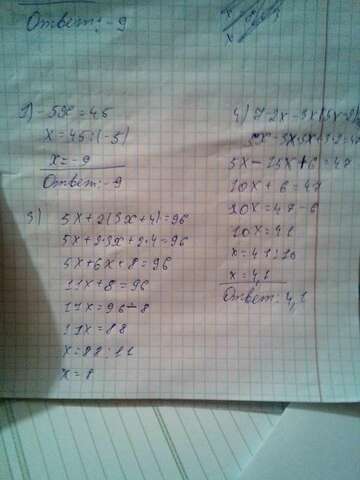 Ответ: -9
-5x = 45
x = 45:(-5)
x = -9
Ответ: -9
3) 5x+2(3x+4)=96
5x+2·3x+2·4=96
5x+6x+8=96
11x+8=96
11x=96-8
11x=88
x=88:11
x=8
4)
+6=47
10x+6=47
10x=47-6
10x=41
x=41:10
x=4,1
Ответ: 4,1